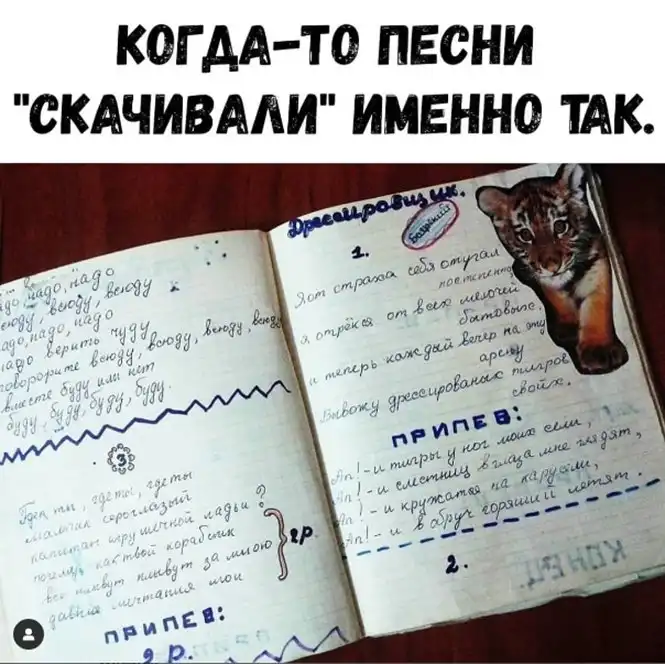 КОГДА-ТО ПЕСНИ
"СКАЧИВАЛИ" ИМЕННО ТАК.
надо, надо
всюду, всюду
надо, надо
надо верить чуду
говорите всюду, всюду, всюду, всюду
вместе буду или нет
буду, буду, буду, буду.
3
Где ты, где ты, где ты
мальчик сероглазый
капитан игрушечной ладьи ?
почему как твой кораблик
все плывут плывут за мною
давние мечтания мои
2р.
ПРИПЕВ:
2 р.
Дрессировщик.
Боярский
1.
Я от страха себя отучал
постепенно
я отрёкся от всех мелочей
бытовых.
и теперь каждый вечер на эту
арену
Вывожу дрессированых тигров
своих.
ПРИПЕВ:
Ап! - и тигры у ног моих сели,
Ап! - и с лестниц в глаза мне глядят,
Ап! - и кружатся на карусели,
Ап! - и в обруч горящий летят.
2.